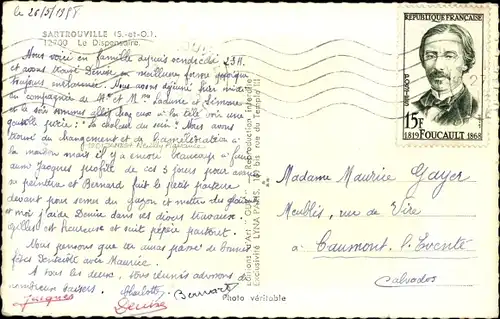 le 26/5/1958
SARTROUVILLE (S.-et-O.)
12900 Le Dispensaire.
Nous voici en famille depuis vendredi 23 H
et avons trouvé Denise en meilleure forme
toujours Nous avons déjeuné hier midi
en compagnie de Mr et Mme et Simone
et le soir sommes allés chez eux à la télé voir une
pièce : "La chaleur du sein". Nous avons
trouvé du changement et de l'amélioration à
la maison mais il y a encore beaucoup à faire
aussi Jacques profite de ces 3 jours pour avancer
sa peinture et Bernard fait le petit parterre
devant pour semer du gazon et mettre des
et moi j'aide Denise dans ses divers travaux.
Gilles est heureuse et suit pépère partout.
Nous pensons que tu auras passé de bonnes
fêtes Pentecôte avec Maurice.
A tous les deux, tous réunis adressons de
nombreux baisers.
Jacques Charlotte Denise Bernard
Photo véritable
Editions d'Art
Reproduction interdite
Exclusivité LYNA PARIS, bis rue du Temple
REPUBLIQUE FRANÇAISE
LÉON FOUCAULT
15F
POSTES
1819 FOUCAULT 1868
Madame Maurice Gayer
Meublés, rue de Vire
à Caumont l'Eventé
Calvados